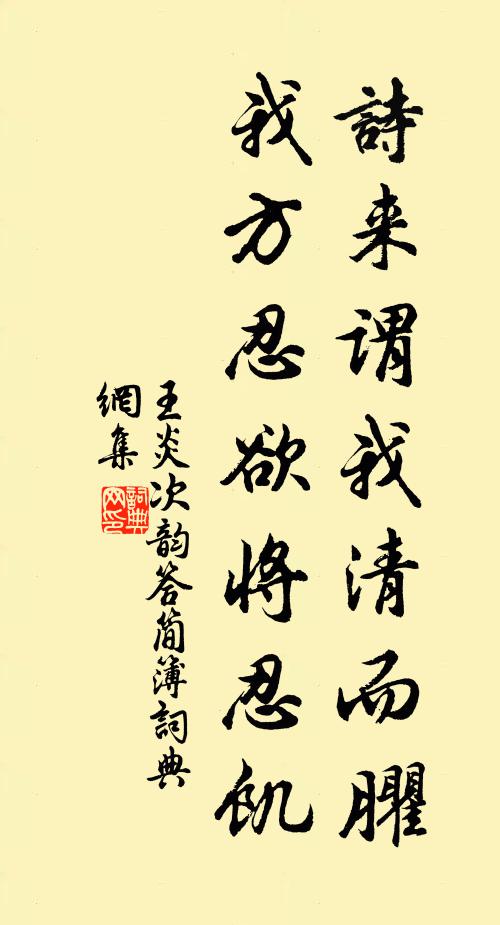 詩来謂我清而臞
我方忍欲將忍飢
王炎次韵答简簿詞典
網集
詞典
网印